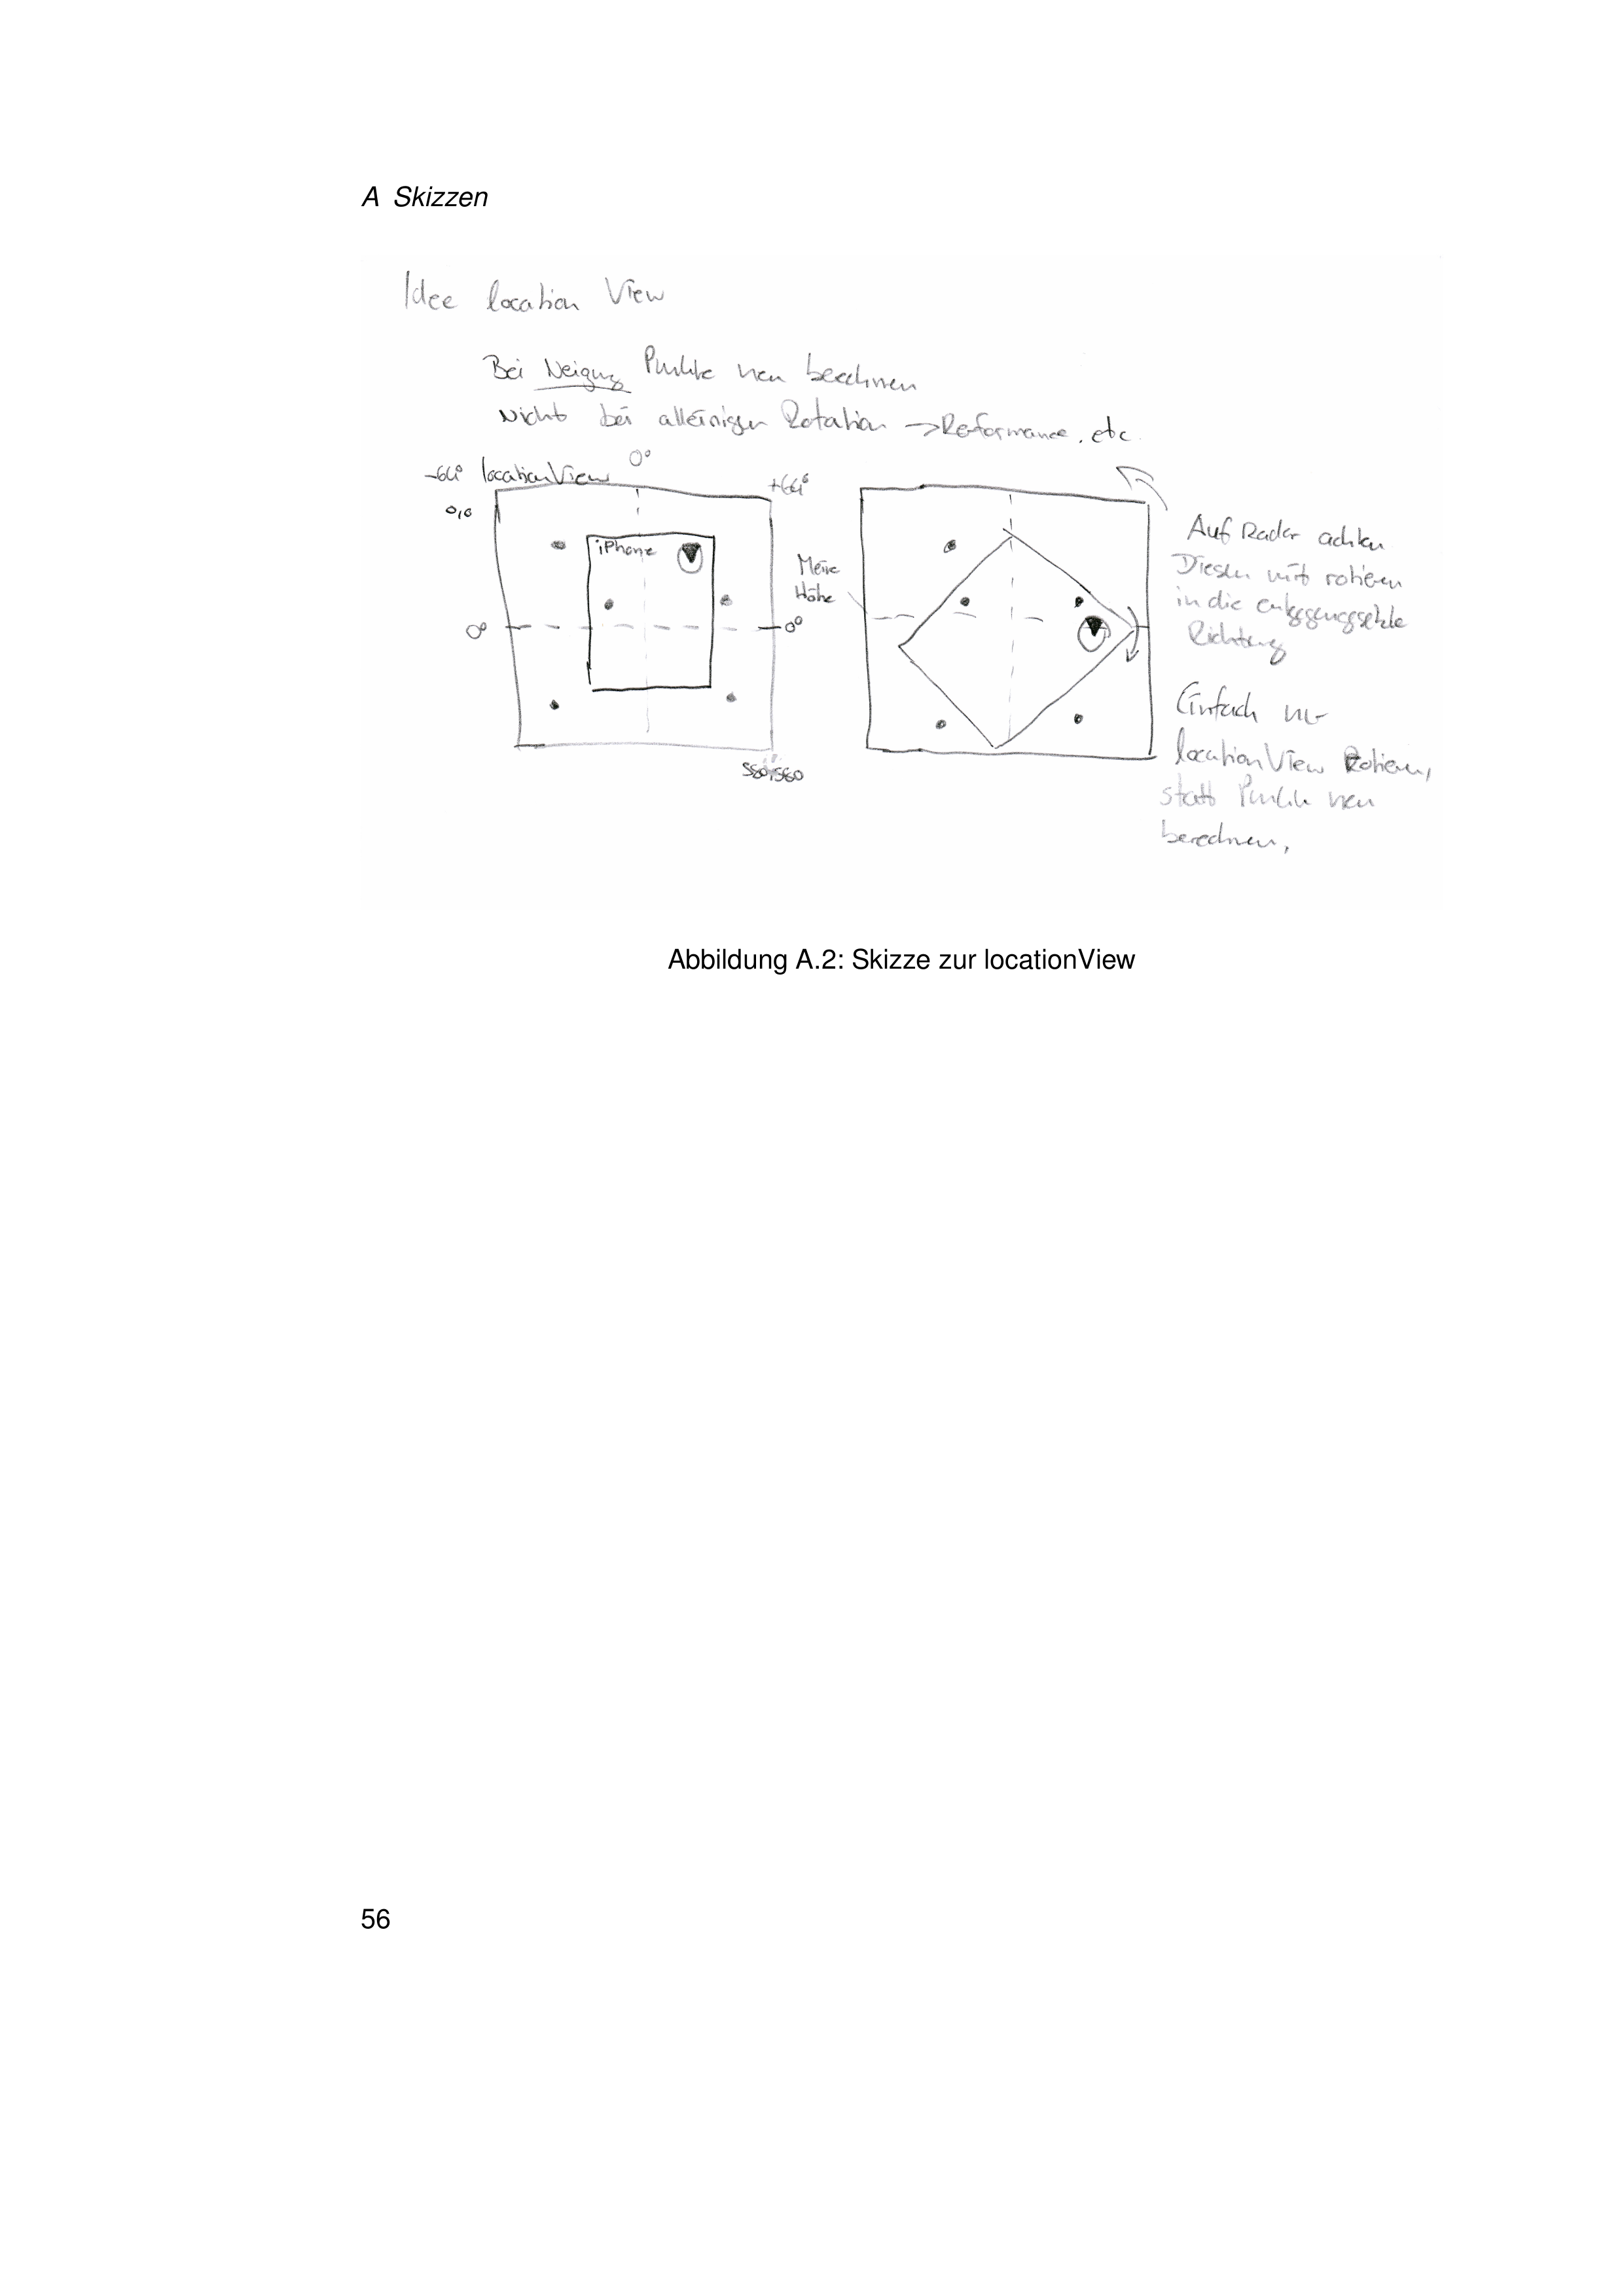 A Skizzen
Idee location View
Bei Neigung Punkte neu berechnen
Nicht bei alleiniger Rotation → Performance, etc.
-64° locationView 0° +64°
0,0
iPhone
0° 0°
560,560
Meine
Höhe
Auf Radar achten
Diesen mit rotieren
in die entgegengesetzte
Richtung
Einfach nur
locationView Rotieren,
statt Punkte neu
berechnen,
Abbildung A.2: Skizze zur locationView
56